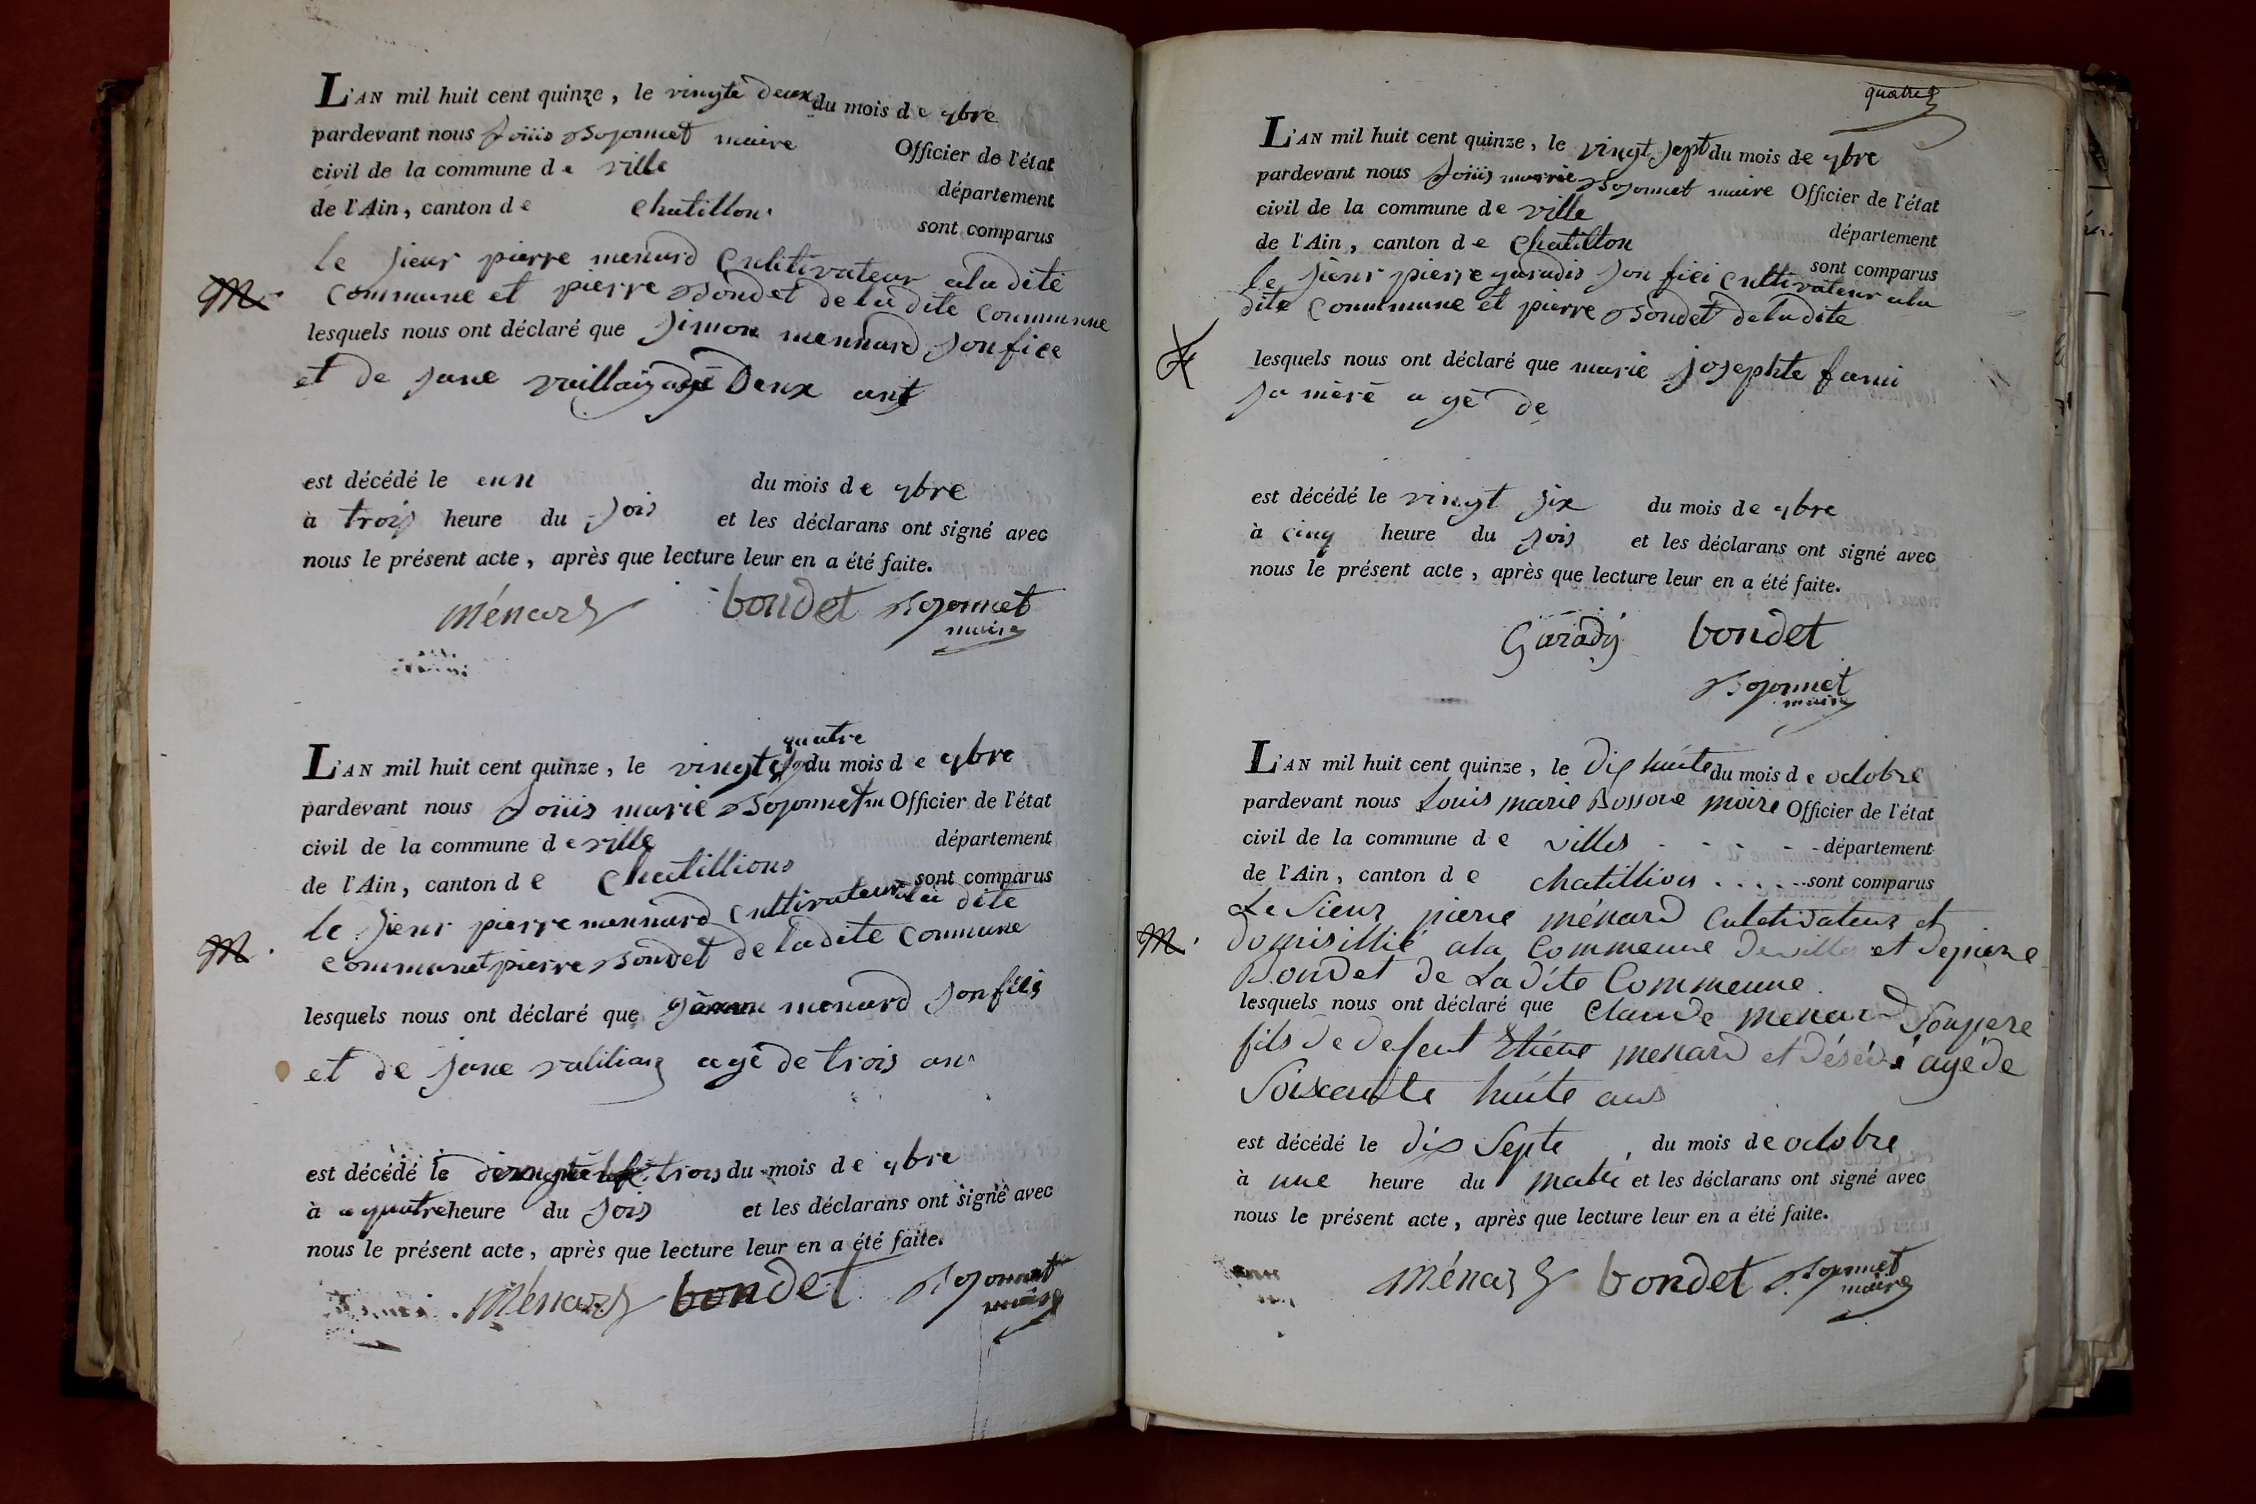 L'AN mil huit cent quinze, le vingte deux du mois de 7bre
pardevant nous Louis Bosonnet maire Officier de l'état
civil de la commune de ville département
de l'Ain, canton de Chatillon sont comparus
le sieur pierre menard Cultivateur a la dite
M.
commune et pierre Bondet de la dite Commune
lesquels nous ont déclaré que Simon mennard son
et de jane agé Deux ans
est décédé le eun du mois de 7bre
à trois heure du soir et les déclarans ont signé avec
nous le présent acte, après que lecture leur en a été faite.
Ménard bondet Bosonnet
maire
quatre
L'AN mil huit cent quinze, le vingte du mois de 7bre
pardevant nous Louis marie Bosonnet m Officier de l'état
civil de la commune de ville département
de l'Ain, canton de Chatillions sont comparus
le sieur pierre mennard Cultivateur a la dite
M.
commune et pierre Bondet de la dite Commune
lesquels nous ont déclaré que menard son fils
et de jane agé de trois an
est décédé le trois du mois de 7bre
à a quatre heure du soir et les déclarans ont signé avec
nous le présent acte, après que lecture leur en a été faite.
Ménard bondet Bosonnet
maire
quatre
L'AN mil huit cent quinze, le vingt sept du mois de 7bre
pardevant nous Louis marie Bosonnet maire Officier de l'état
civil de la commune de ville département
de l'Ain, canton de Chatillon sont comparus
le sieur pierre garadis son Cultivateur a la
dite Commune et pierre Bondet de la dite
lesquels nous ont déclaré que marie josephte
sa mère agé de
est décédé le vingt six du mois de 7bre
à cinq heure du soir et les déclarans ont signé avec
nous le présent acte, après que lecture leur en a été faite.
Garady bondet
Bosonnet
maire
L'AN mil huit cent quinze, le Dix huite du mois de octobre
pardevant nous Louis marie Bossone maire Officier de l'état
civil de la commune de villes département
de l'Ain, canton de chatillion sont comparus
Le Sieur pierre ménard Cultivateur et
M.
Domisillié a la Commeune de ville et de pierre
Bondet de La dite Commeune
lesquels nous ont déclaré que Claude menard Son pere
fils de defeut Etiene menard et désédé agé de
Soixeante huite ans
est décédé le dix Septe du mois de octobre
à une heure du matin et les déclarans ont signé avec
nous le présent acte, après que lecture leur en a été faite.
Ménard bondet Bosonnet
maire